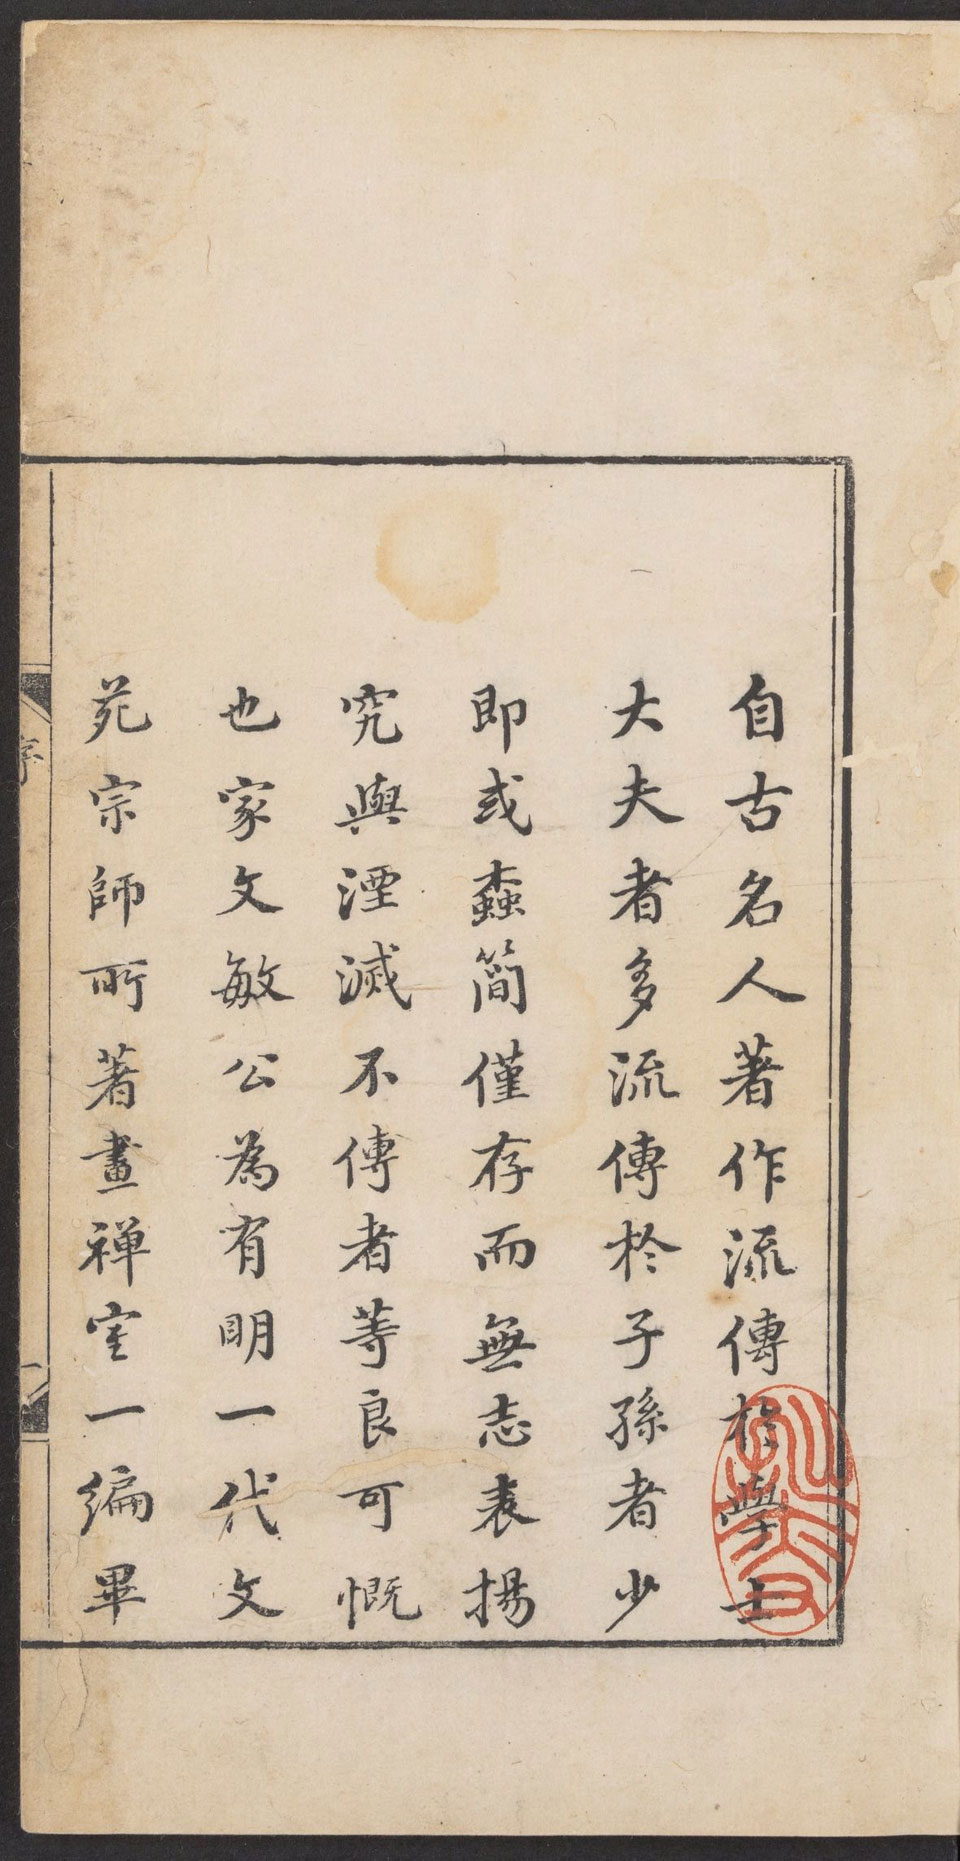 自古名人著作流傳於學士
大夫者多流傳於子孫者少
即或蠹簡僅存而無志表揚
究與湮滅不傳者等良可慨
也家文敏公為有明一代文
苑宗師所著畫禅室一編畢
序